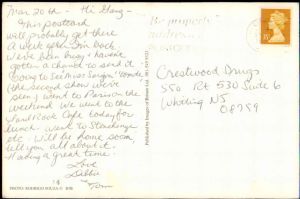 Mar 20th - Hi Gang -
This postcard
will probably get there
a week after I'm back
We've been busy & haven't
got a chance to send it
Going to see Miss Saigon tonite
(the second show we've
seen) went to Paris on the
weekend We went to the
Hard Rock Cafe today for
lunch. Went to Stonehenge
etc. Will be home soon,
tell you all about it.
Having a great time.
Love
Debbie
&
Tom
Be properly
addressed
Crestwood Drugs
550 Rt 530 Suite 6
Whiting NJ
08759